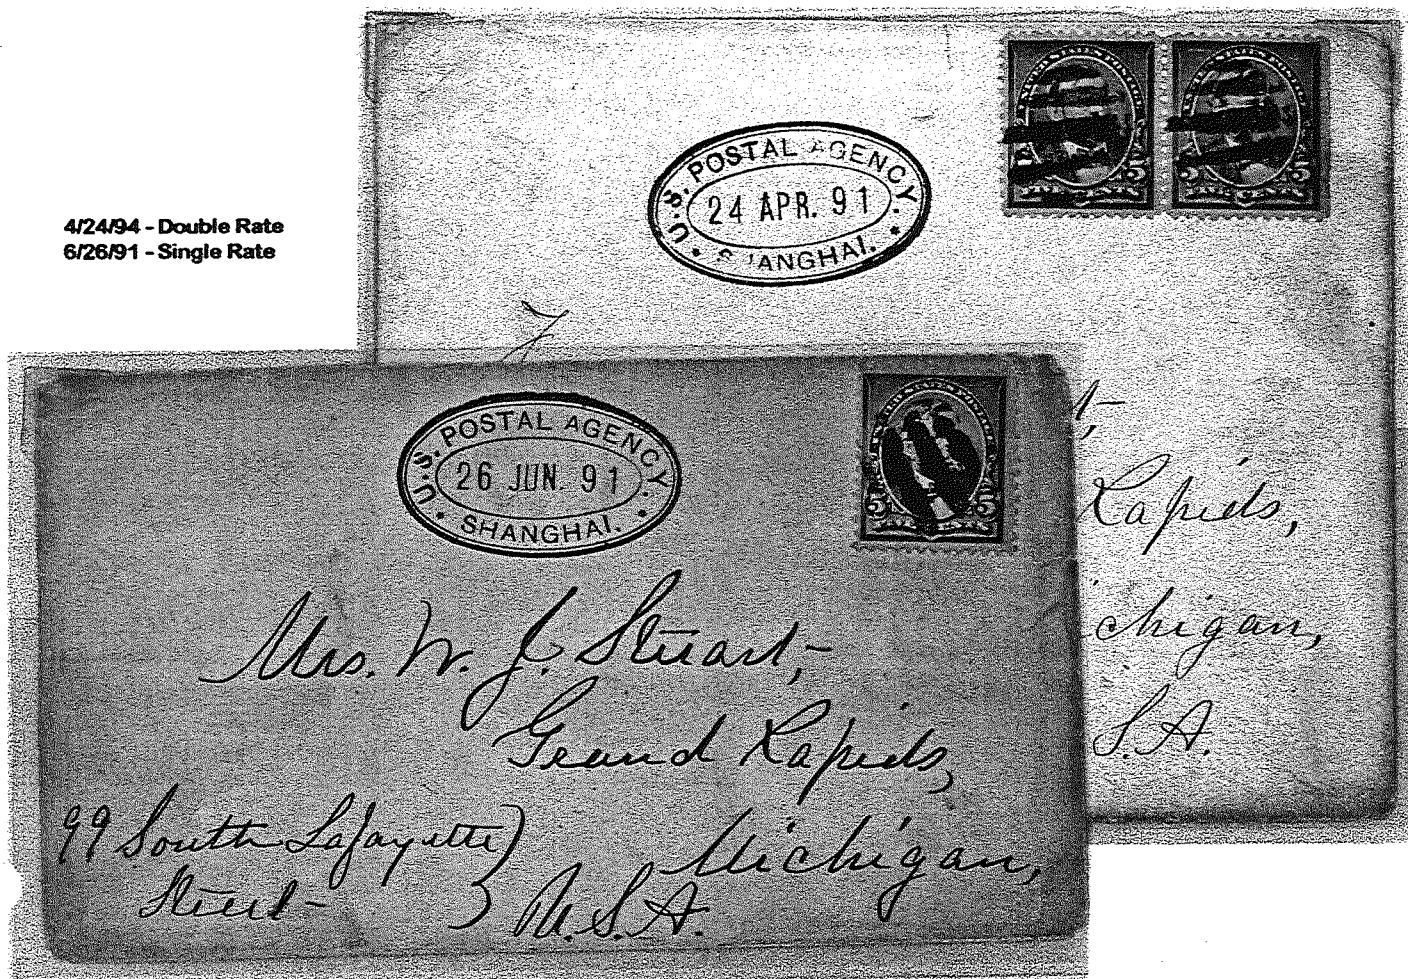 4/24/94 - Double Rate
6/26/91 - Single Rate
U.S. POSTAL AGENCY.
24 APR. 91
SHANGHAI.
Rapids,
chigan,
S.A.
U.S. POSTAL AGENCY.
26 JUN. 91
SHANGHAI.
5 5
Mrs. W. J. Stuart,
Grand Rapids,
Michigan,
99 South Lafayette
Street
U.S.A.